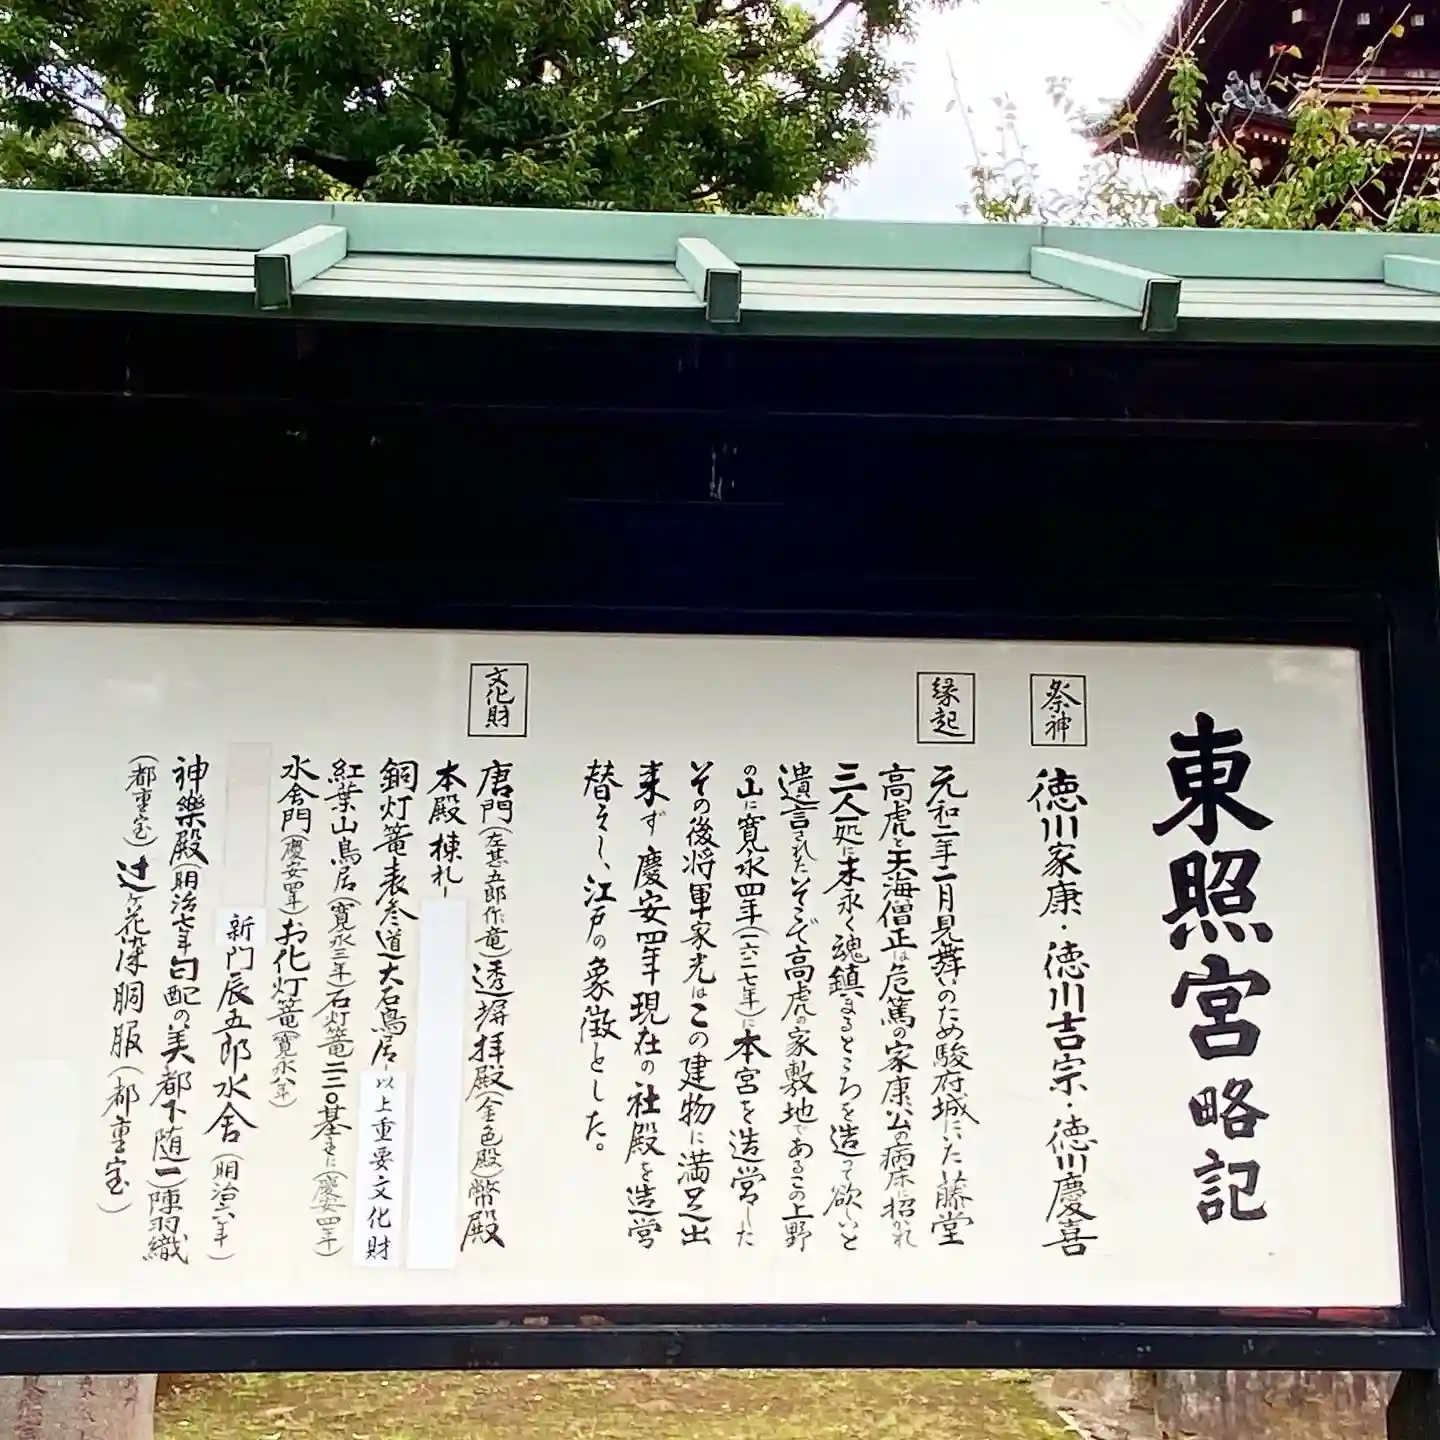 東照宮略記
祭神
徳川家康・徳川吉宗・徳川慶喜
縁起
元和二年二月見舞いのため駿府城にいた藤堂
高虎と天海僧正は危篤の家康公の病床に招かれ
三人一処に末永く魂鎮まるところを造って欲しいと
遺言されたそこで高虎の家敷地であるこの上野
の山に寛永四年(一六二七年)に本宮を造営した
その後将軍家光はこの建物に満足出
来ず慶安四年現在の社殿を造営
替えし、江戸の象徴とした。
文化財
唐門(左甚五郎作竜)透塀拝殿(金色殿)幣殿
本殿棟札
銅灯篭表参道大石鳥居 以上重要文化財
紅葉山鳥居(寛永三年)石灯篭二二〇基主に(慶安四年)
水舎門(慶安四年)お化灯篭(寛永八年)
新門辰五郎水舎(明治六年)
神樂殿(明治七年)勾配の美都下随一)陣羽織
(都重宝)辻ヶ花染胴服(都重宝)